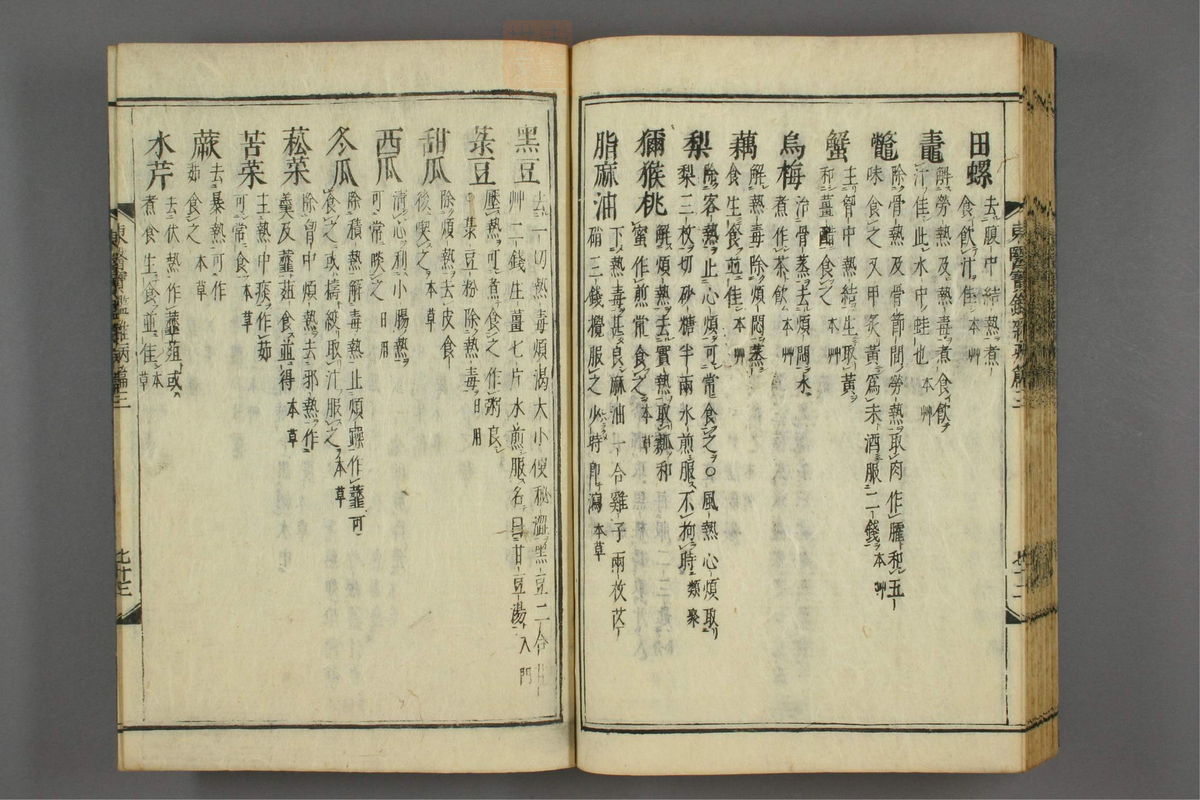 田螺
去腹中結熱煮
食飲汁佳 本艸
鼃
解勞熱及熱毒煮食飲
汁佳此水中蛙也 本艸
鼈
除骨熱及骨節間勞熱取肉作臛和五
味食之又甲炙黃爲末酒服二錢 本艸
蟹
主胷中熱結生取黃
和薑醋食之 本艸
烏梅
治骨蒸去煩悶水
煮作茶飲 本艸
藕
解熱毒除煩悶蒸
食生食並佳 本艸
梨
除客熱止心煩可常食之○風熱心煩取
梨三枚切砂糖半兩水煎服不拘時 類聚
獼猴桃
解煩熱去實熱取瓤和
蜜作煎常食之 本草
脂麻油
下熱毒甚良麻油一合雞子兩枚芒
硝三錢攪服之少時卽瀉 本草
東醫寶鑑雜病篇三
七十二
黑豆
去一切熱毒煩渴大小便秘澀黑豆二合甘
艸二錢生薑七片水煎服名曰甘豆湯 入門
菉豆
壓熱可煮食之作粥良
中集豆粉除熱毒 日用
甜瓜
除煩熱去皮食
後喫之 本草
西瓜
淸心利小腸熱
可常啖之 日用
冬瓜
除積熱解毒熱止煩躁作虀可
食之或擣絞取汁服之 本草
菘菜
除胷中煩熱去邪熱作
羹及虀葅食並得 本草
苦菜
主熱中疾作茹
可常食 本草
蕨
去暴熱可作
茹食之 本草
水芹
去伏熱作虀葅或
煮食生食並佳 本草
東醫寶鑑雜病篇三
七十三